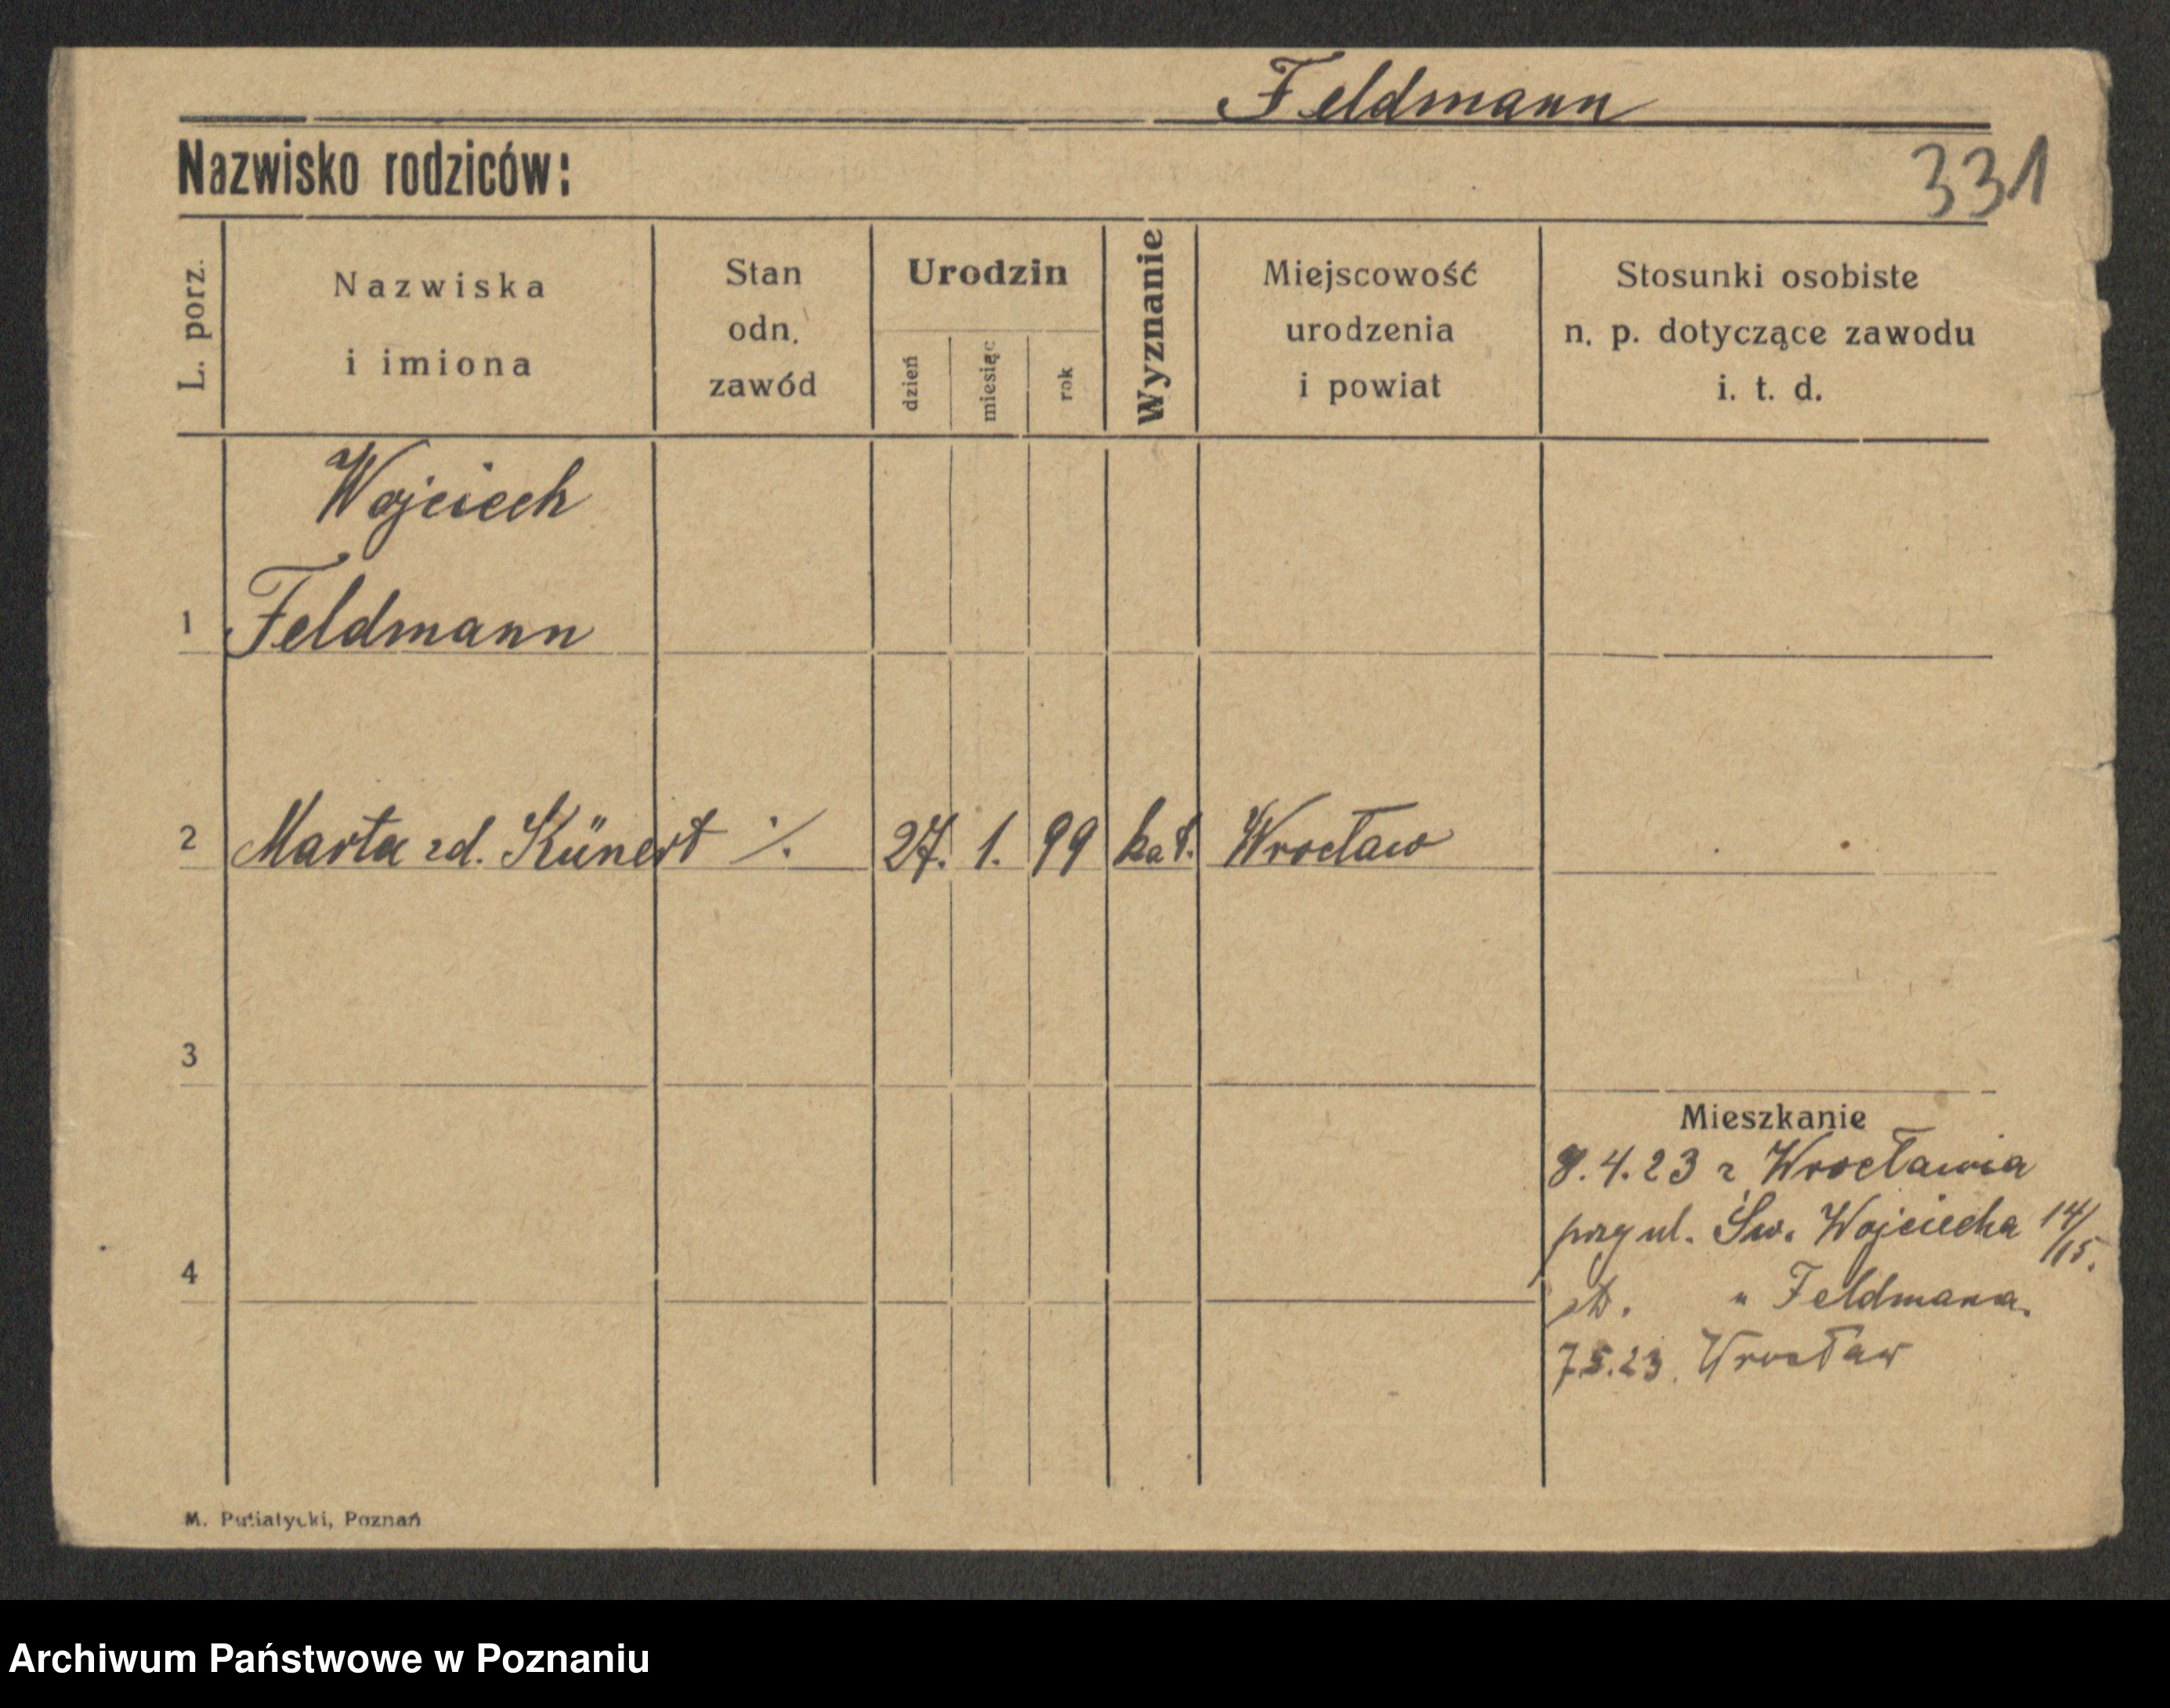 Feldmann
Nazwisko rodziców:
331
L. porz.
Nazwiska
i imiona
Stan
odn.
zawód
Urodzin
dzień
miesiąc
rok
Wyznanie
Miejscowość
urodzenia
i powiat
Stosunki osobiste
n. p. dotyczące zawodu
i. t. d.
Wojciech
1 Feldmann
2 Marta zd. Künert ·/. 27. 1. 99 kat. Wrocław
3
Mieszkanie
8.4.23 z Wrocławia
przy ul. Św. Wojciecha 14/15.
4
" Feldmana.
7.5.23. Wrocław
M. Putiatycki, Poznań
Archiwum Państwowe w Poznaniu